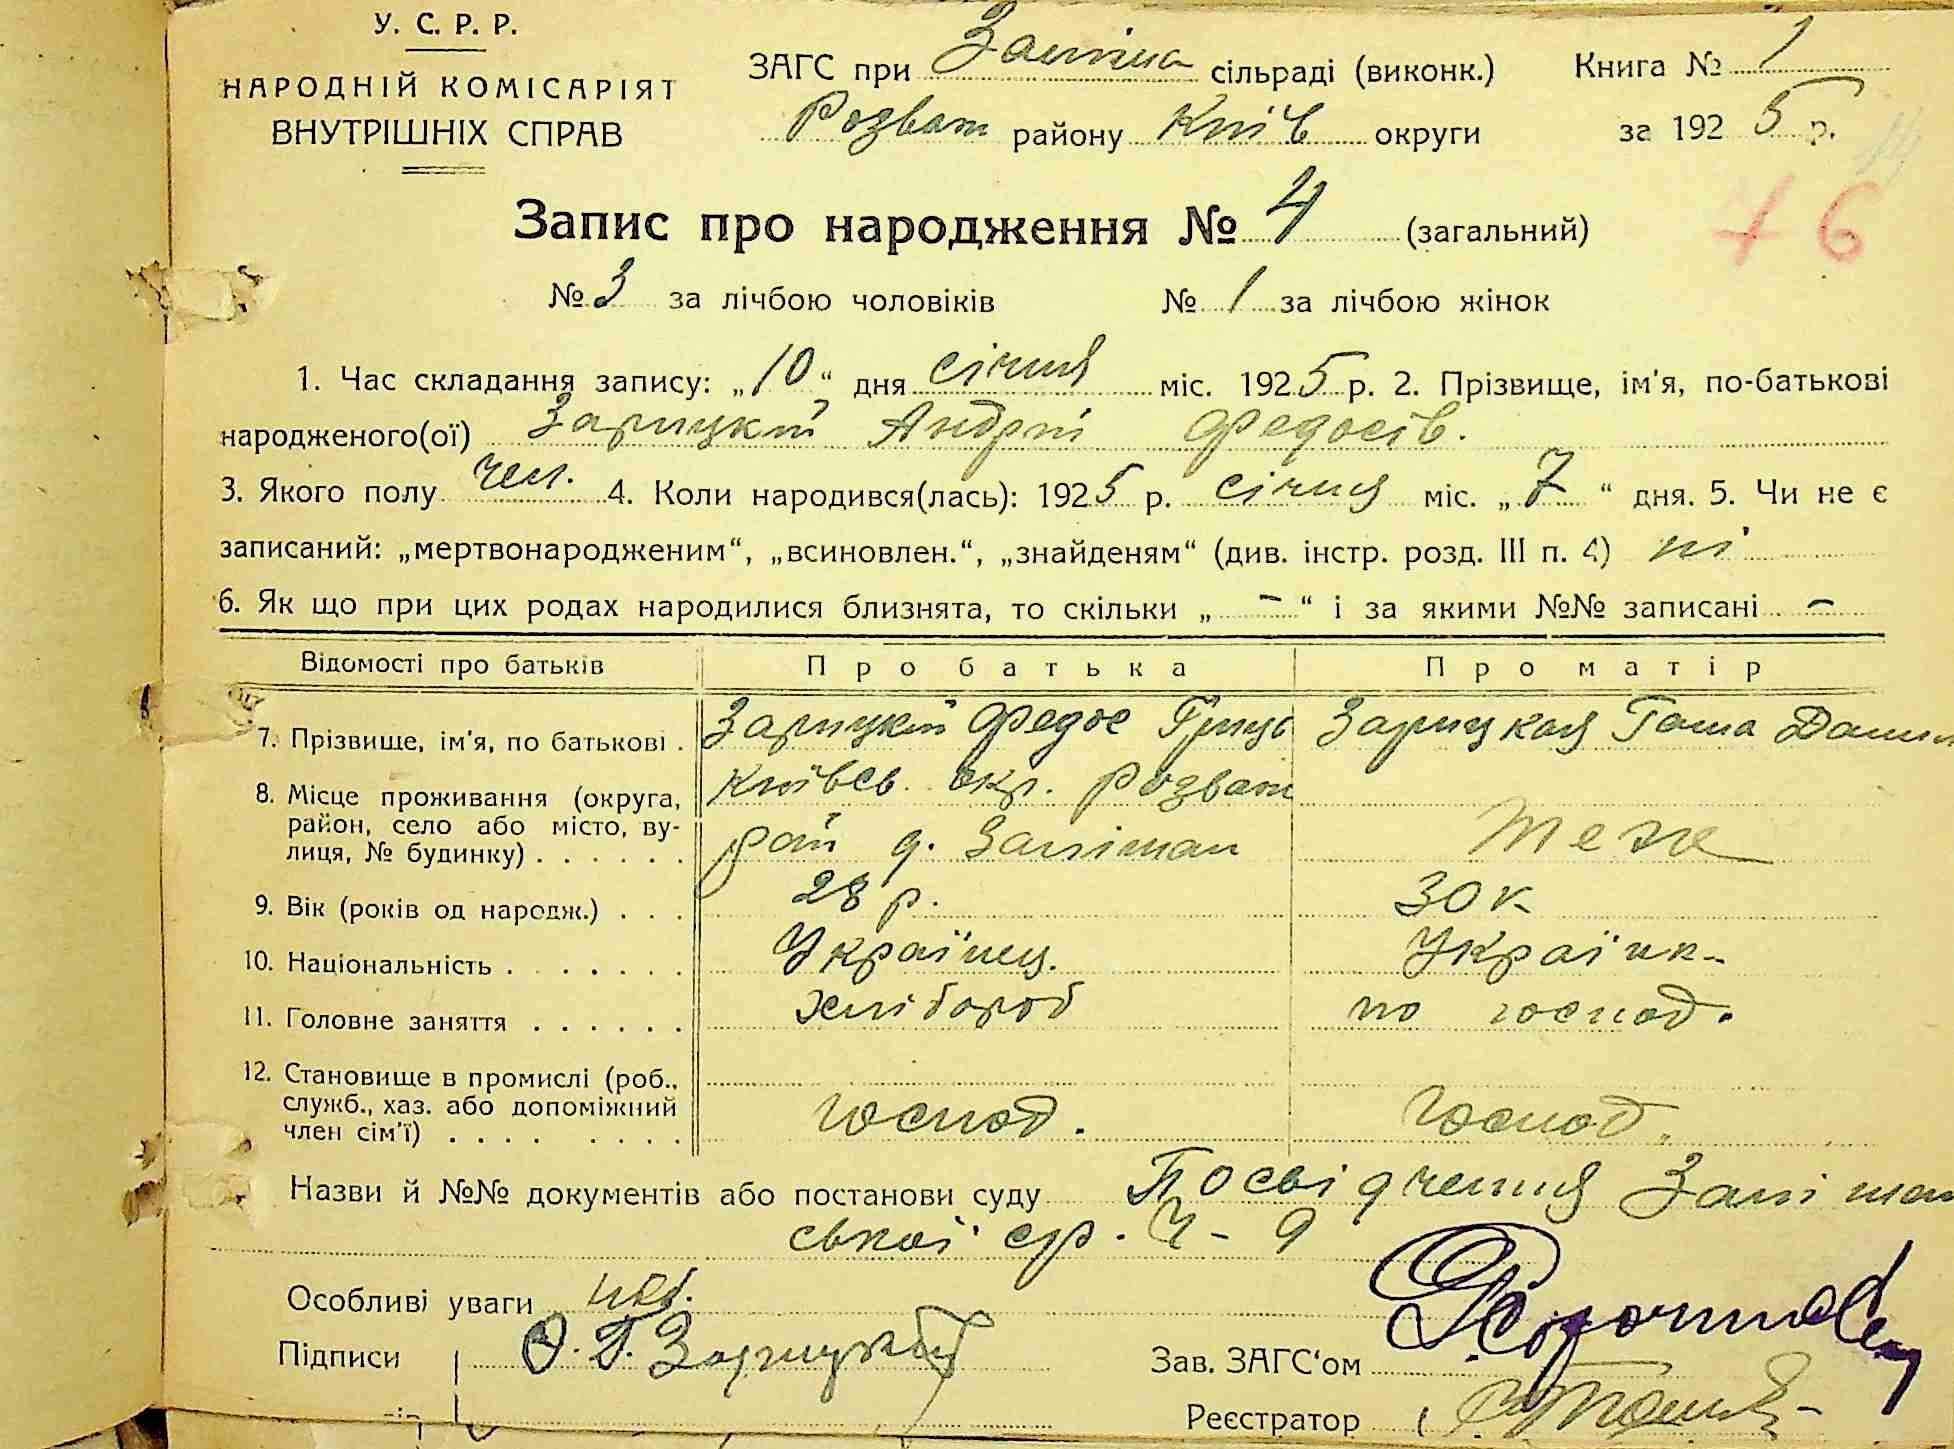 У. С. Р. Р.
НАРОДНІЙ КОМІСАРІЯТ
ВНУТРІШНІХ СПРАВ
ЗАГС при сільраді (виконк.) Книга № 1
Розваж району Київ округи за 1925 р.
Запис про народження № 4 (загальний)
+ 6
№ 3 за лічбою чоловіків № 1 за лічбою жінок
1. Час складання запису: „10“ дня січня міс. 1925 р. 2. Прізвище, ім'я, по-батькові
народженого(ої) Зарицкій Андрій Федосів.
3. Якого полу чол. 4. Коли народився(лась): 1925 р. січня міс. „7“ дня. 5. Чи не є
записаний: „мертвонародженим“, „всиновлен.“, „знайденям“ (див. інстр. розд. III п. 4) ні
6. Як що при цих родах народилися близнята, то скільки „ – “ і за якими №№ записані –
Відомості про батьків Про батька Про матір
7. Прізвище, ім'я, по батькові . Зарицкій Федос Гриць Зарицкая Ганна Данил
8. Місце проживання (округа, район, село або місто, вулиця, № будинку) . . . . . .
Київсь окр. Розваж
рай д. Теж
9. Вік (років од народж.) . . . 28 р. 30 к
10. Національність . . . . . . . Українец. Українк-
11. Головне заняття . . . . . . Хлібороб по господ.
12. Становище в промислі (роб., служб., хаз. або допоміжний член сім'ї) . . . . . . . . господ. господ.
Назви й №№ документів або постанови суду Посвідчення
ської ср. Ч - 9
Особливі уваги
Підписи Ф. Г. Зарицкий
Зав. ЗАГС'ом
Реєстратор